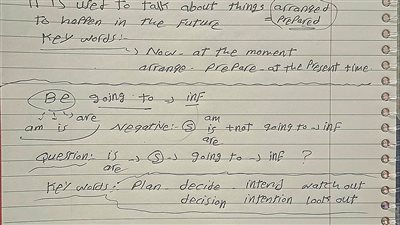 It is used to talk about things arranged
to happen in the future prepared
Key words:-
Now - at the moment
arrange - prepare - at the present time.
Be going to → inf
am is are Negative:- S am
is + not going to → inf
are
Question: is → S → going to → inf ?
are
Key words:- Plan decide - intend watch out
decision intention look out